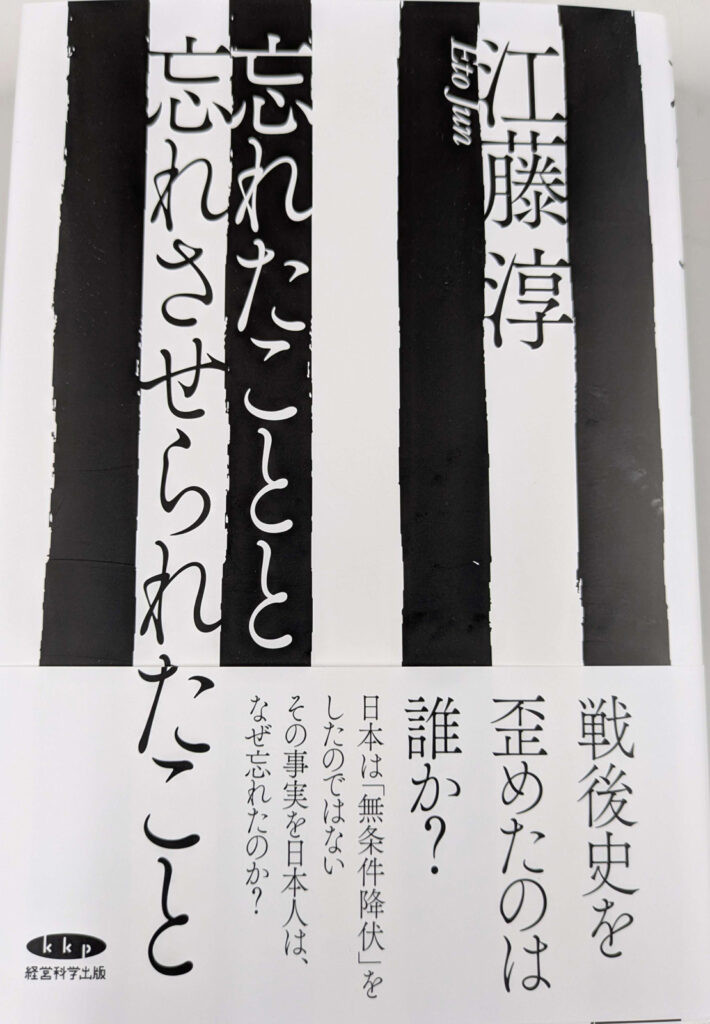 江藤淳
Eto Jun
忘れたことと
忘れさせられたこと
戦後史を
歪めたのは
誰か？
日本は「無条件降伏」を
したのではない
その事実を日本人は、
なぜ忘れたのか？
kkp
経営科学出版